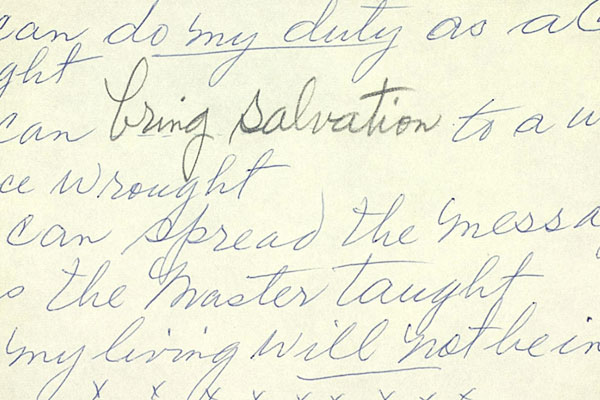 can do my duty as a C
ght
can bring salvation to a w
ce wrought
can spread the messa
s the Master taught
my living will not be in
x x x x x x x x